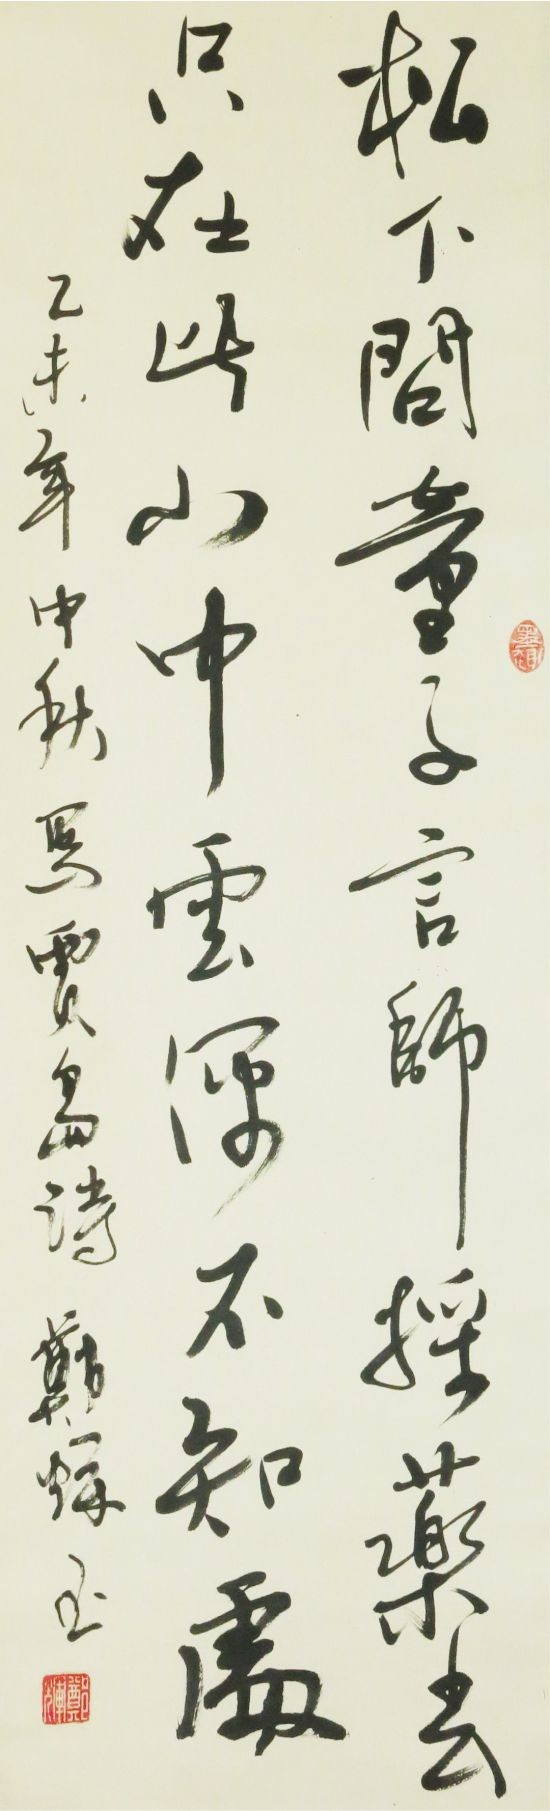 松下問童子言師採藥去
只在此山中雲深不知處
乙未年中秋寫賈島詩 鄭煇